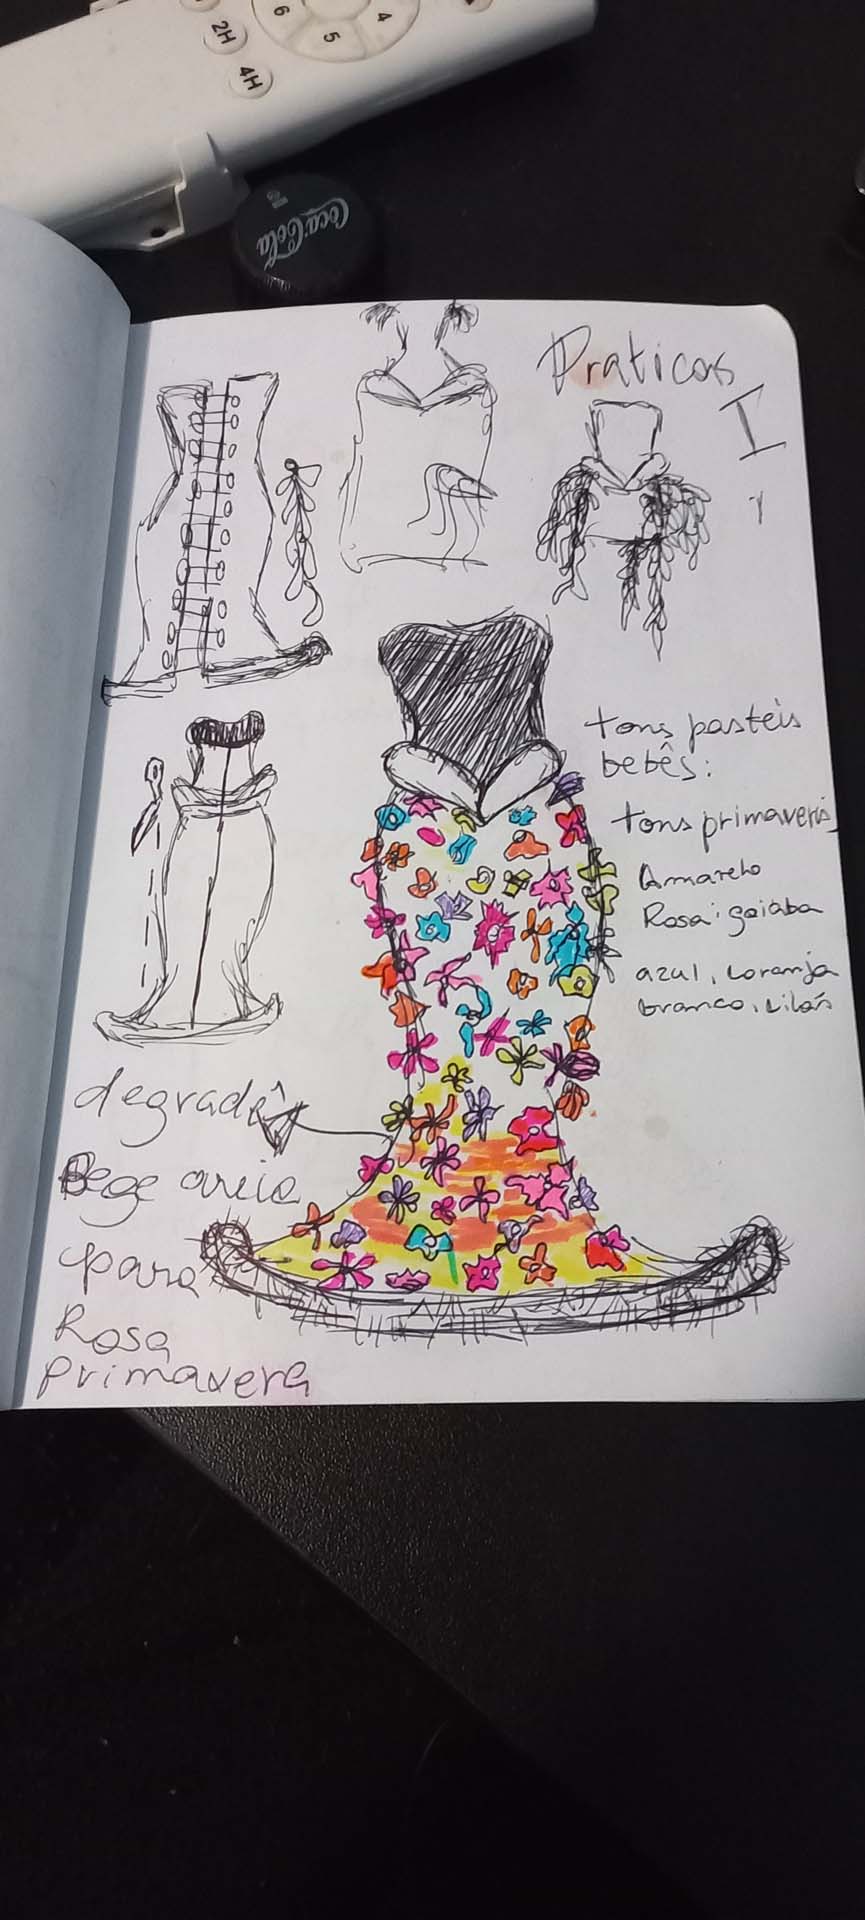 6
5
4
2H
4H
Coca-Cola
Praticas
I
tons pasteis
bebês:
tons primaveris
Amarelo
Rosa: goiaba
azul, laranja
branco, lilás
degradê
Bege areia
para
Rosa
primavera